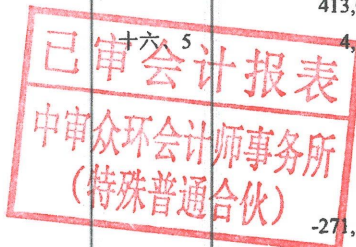 413,
十六、5
4,
已审会计报表
中审众环会计师事务所
（特殊普通合伙）
-271,